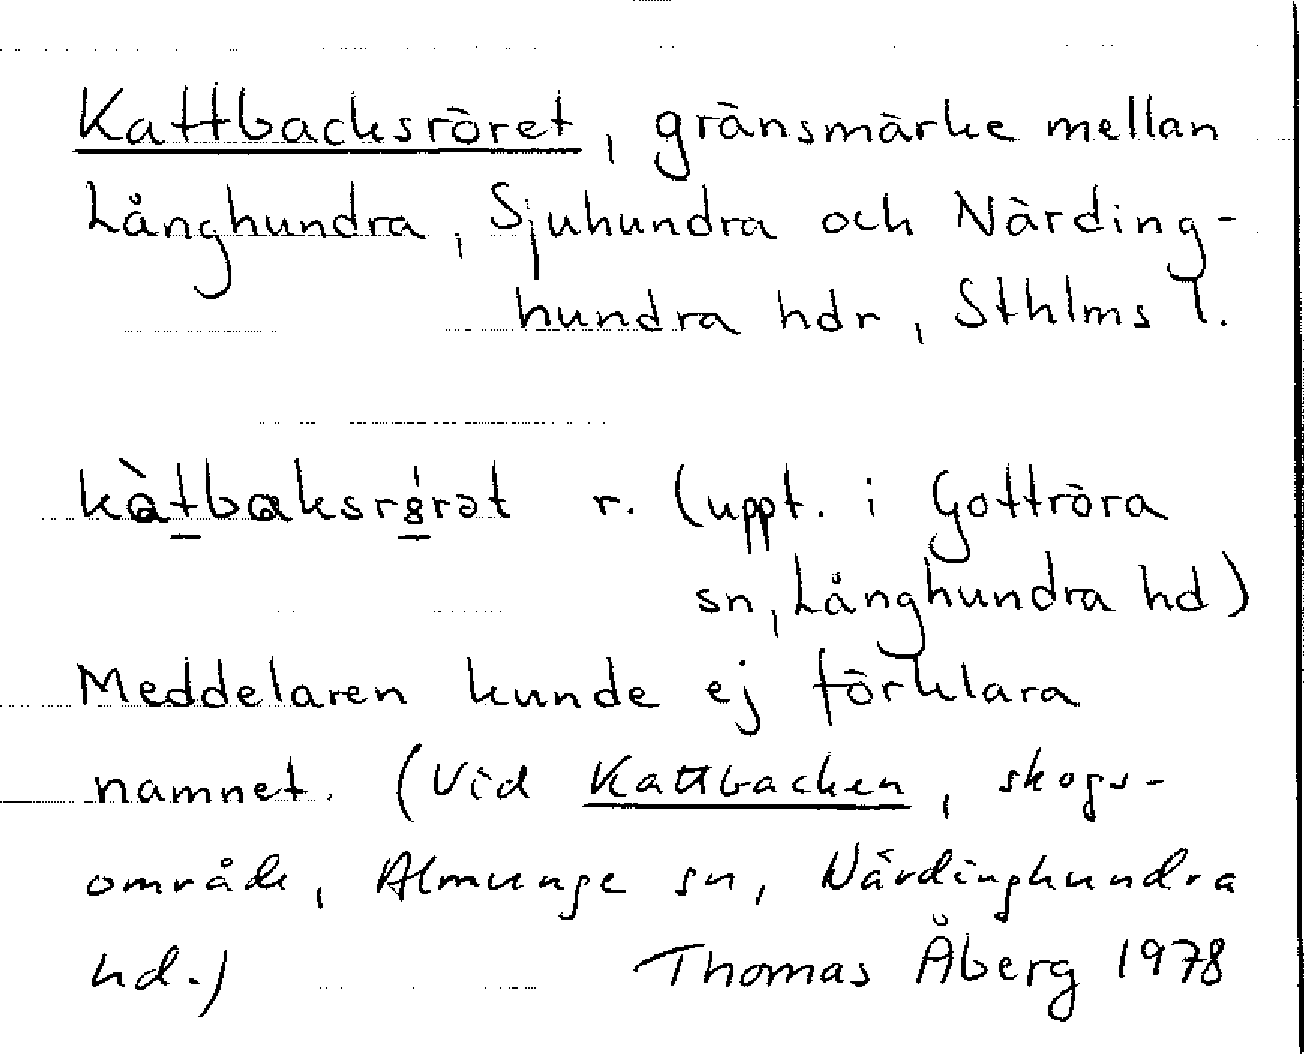 Kattbacksröret, gränsmärke mellan
Långhundra, Sjuhundra och Närding-
hundra hdr, Sthlms l.
r. (uppt. i Gottröra
sn, Långhundra hd)
Meddelaren kunde ej förklara
namnet. (Vid Kattbacken, skogs-
område, Almunge sn, Närdinghundra
hd.) Thomas Åberg 1978